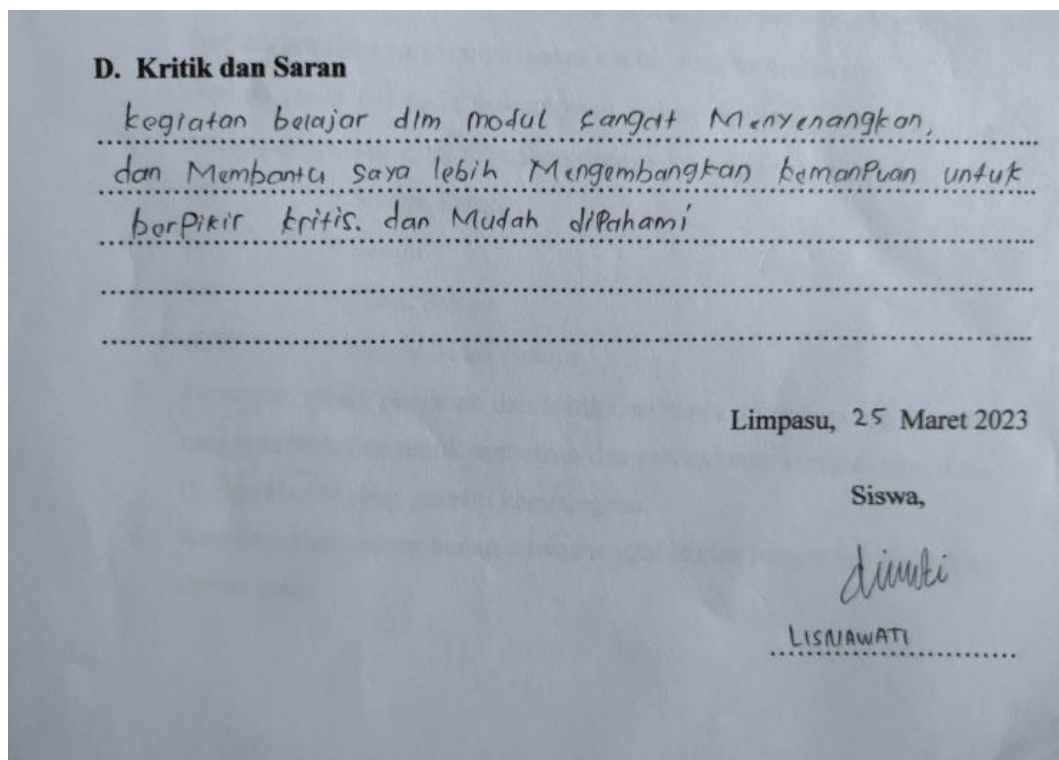 D. Kritik dan Saran
kegiatan belajar dlm modul sangat Menyenangkan,
dan Membantu saya lebih Mengembangkan kemanPuan untuk
berPikir kritis. dan Mudah diPahami
Limpasu, 25 Maret 2023
Siswa,
LISNAWATI